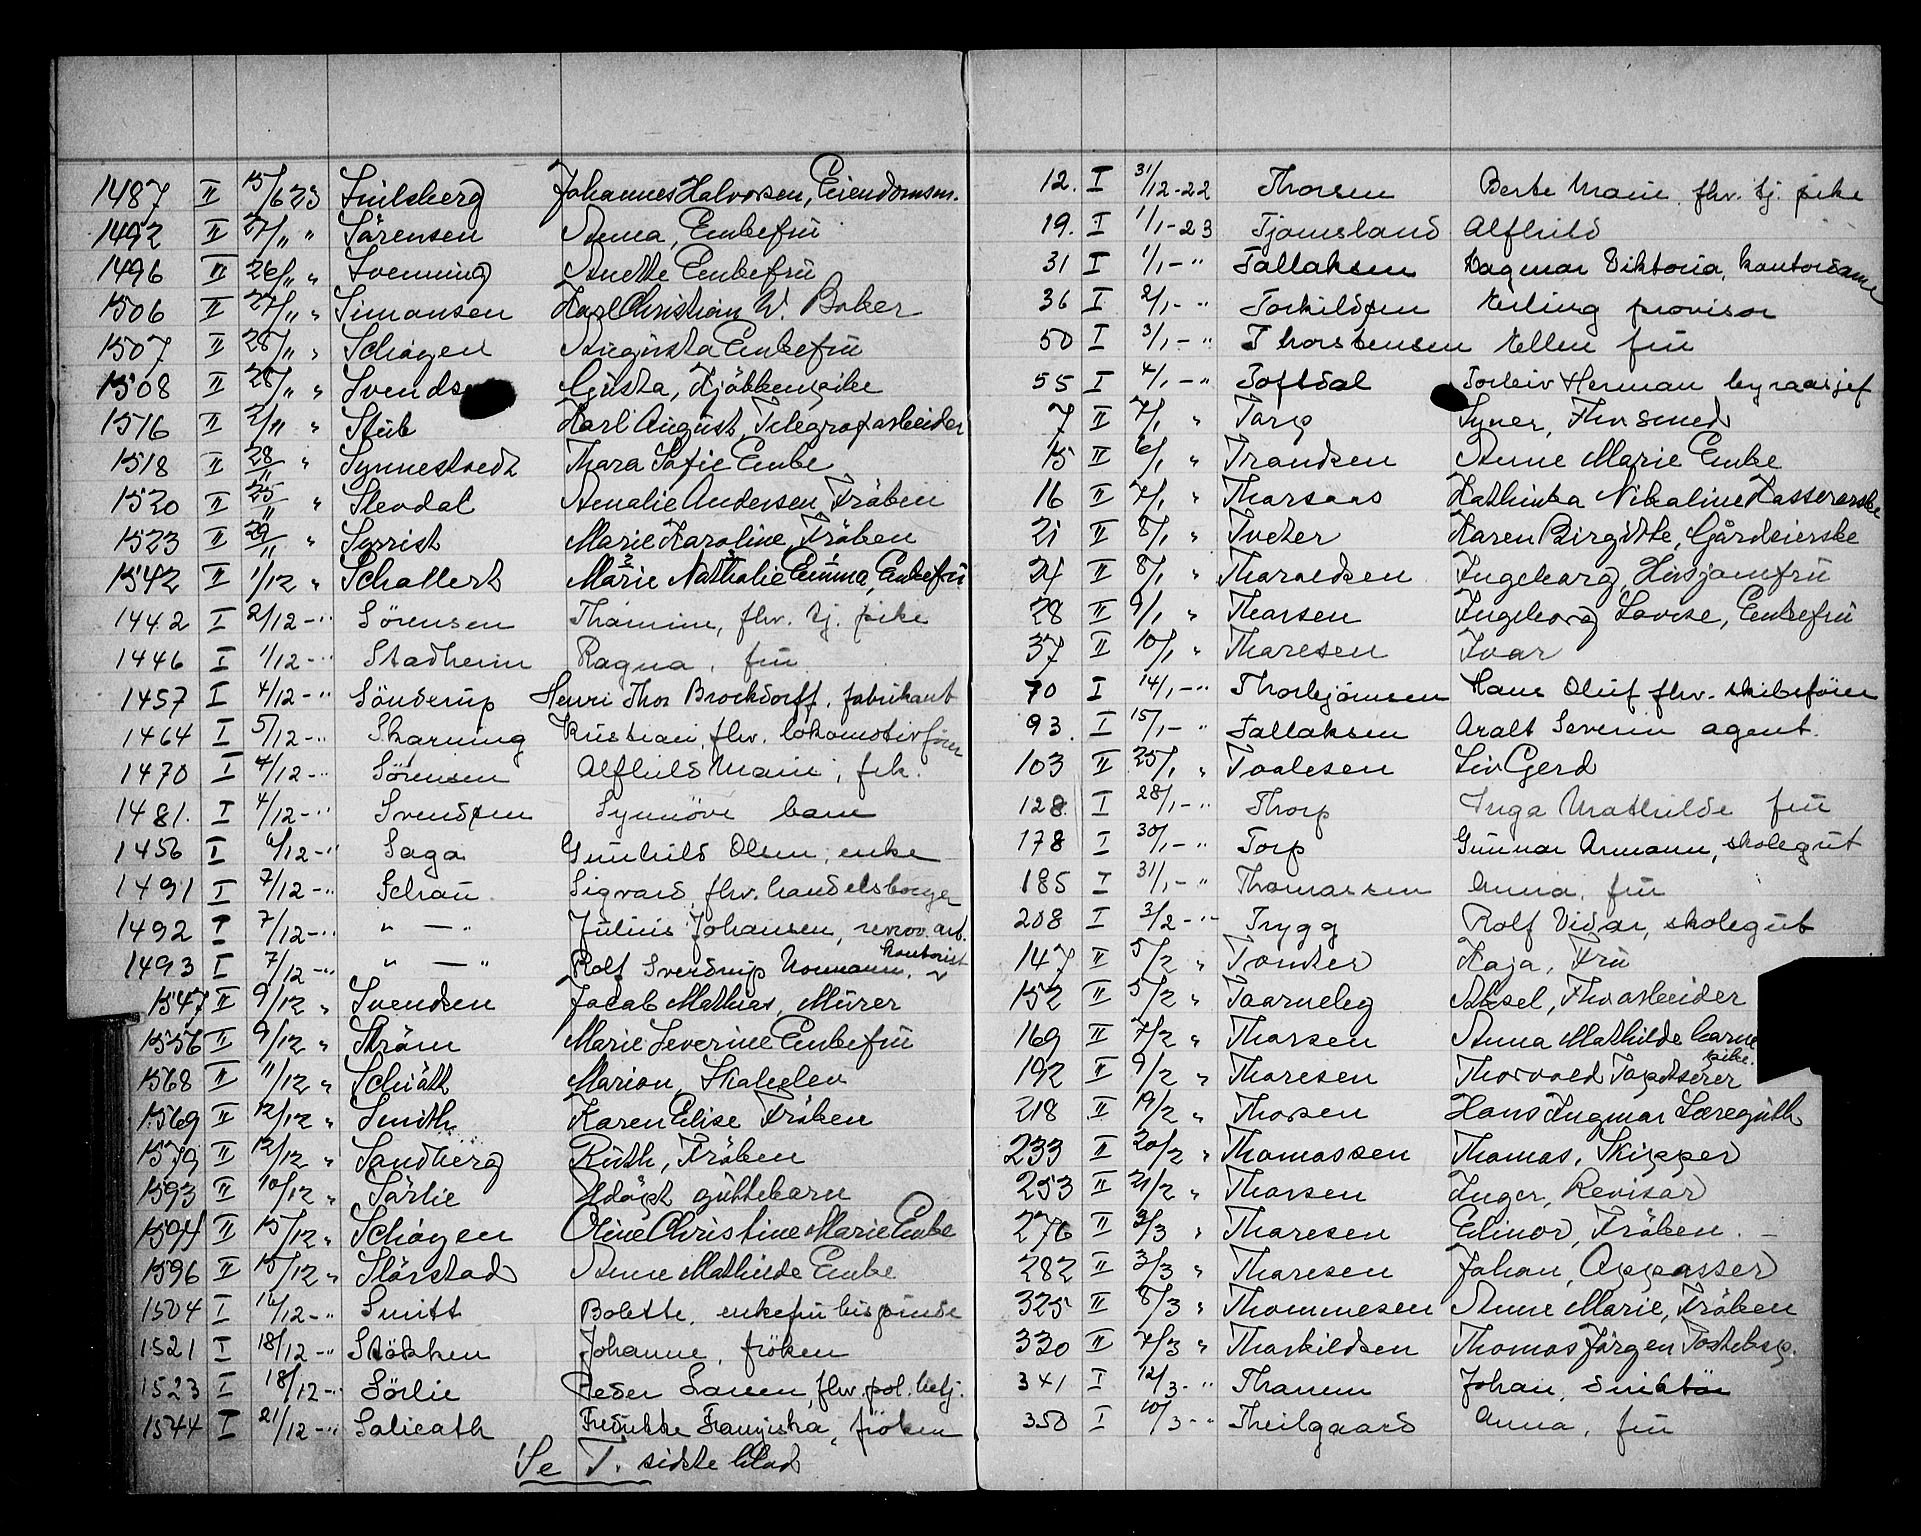 1487 II 15/6 23 Smilsberg Johannes Halvorsen, Eiendomsm.
1492 II 27/11 " Sörensen Anna, Enkefru
1496 II 26/11 " Svenning Anette Enkefru
1506 II 27/11 " Simonsen Karl Christian W. Baker
1507 II 28/11 " Schøyen Augusta Enkefru
1508 II 28/11 " Svendsen Gusta, Kjökkenpike
1516 II 2/11 " Stub Karl August, Telegrafarbeider
1518 II 28/11 " Synnestvedt Thora Sofie Enke
1520 II 25/11 " Slevdal Amalie Andersen, Fröken
1523 II 29/11 " Syrrist Marie Karoline, Fröken
1542 II 1/12 " Schallert Marie Nathalie Emma, Enkefru
1442 I 2/12 -" Sørensen Thomine, fhv. tj. pike
1446 I 1/12 -" Stadheim Ragna, fru
1457 I 4/12 -" Sönderup Henri Thor Brockdorff, fabrikant
1464 I 5/12 -" Skarning Kristian, fhv. lokomotivfører
1470 I 4/12 -" Sørensen Alfhild Marie, frk.
1481. I 4/12 -" Svendsen Synnöve barn
1456 I 6/12 -" Saga Gunhild Olsen, enke
1491 I 7/12 -" Schau Sigvard, fhv. handelsborger
1492 I 7/12 -" " — " Julius Johansen, renov. arb.
1493 I 7/12 -" " — " Rolf Sverdrup Normann, kontorist
1547 II 9/12 " Svendsen Jacob Mathias, Murer
1556 II 9/12 " Ström Marie Severine Enkefru
1568 II 11/12 " Schiött Marion, Skoleelev
1569 II 12/12 " Smith Karen Elise Fröken
1579 II 12/12 " Sandberg Ruth, Fröken
1593 II 10/12 " Sörlie Udöpt guttebarn
1594 II 15/12 " Schøyen Oline Christine Marie Enke
1596 II 15/12 " Slörstad Anne Mathilde Enke
1504 I 16/12 -" Smitt Bolette, enkefru
1521 I 18/12 -" Stökken Johanne, fröken
1523 I 18/12 -" Sörlie Peder Larsen, fhv. pol. betj.
1544 I 21/12 -" Salicath Fredrikke Franziska, fröken
Se T. sidste blad
12. I 31/12-22 Thorsen Berte Marie, fhv. tj. pike
19. I 1/1-23 Tjomsland Alfhild
31 I 1/1-" Tallaksen Dagmar Viktoria, kontordame
36 I 2/1-" Torkildsen Erling provisor
50 I 3/1-" Thorstensen Ellen fru
55 I 4/1-" Toftdal Torleiv Herman byraasjef
7 II 7/1 " Torp Syver, Fhv smed
15 II 6/1 " Trondsen Anne Marie Enke
16 II 7/1 " Thorsaas Kathinka Nikoline Kassererske
21 II 8/1 " Tveter Karen Birgitte, Gårdeierske
24 II 8/1 " Thoraldsen Ingeborg, Husjomfru
28 II 9/1 " Thorsen Ingeborg Lovise, Enkefru
37 II 10/1 " Thoresen Ivar
70 I 14/1-" Thorbjörnsen Hans Oluf fhv. skibsfører
93. I 15/1-" Tallaksen Aralt Severin agent.
103 II 25/1 " Toalesen Liv Gerd
128. I 28/1-" Thorp Inga Mathilde fru
178 I 30/1-" Torp Gunnar Armann, skolegut
185 I 31/1-" Thomassen Anna, fru
208 I 3/2-" Trygg Rolf Vidar, skolegut
147 II 5/2 " Tonder Kaja, Fru
152 II 5/2 " Toarneby Aksel, Fhv arbeider
169 II 7/2 " Thorsen Anna Mathilde barnepike.
192 II 9/2 " Thoresen Thorvald Tapetserer
218 II 19/2 " Thorsen Hans Ingmar Læreguth
233 II 20/2 " Thomassen Thomas, Skipper
253 II 21/2 " Thorsen Inger, Revisor
276 II 2/3 " Thoresen Elinor, Fröken. —
282 II 3/3 " Thoresen Johan, Oppasser
325 II 8/3 " Thommesen Anne Marie, Fröken
330 II 7/3 " Thorkildsen Thomas Jörgen Postebsp.
341 I 12/3-" Thomm Johan,
350 I 10/3-" Theilgaard Anna, fru